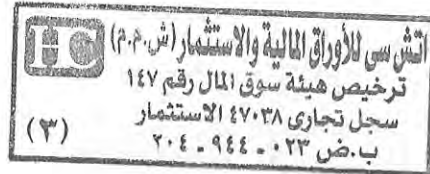 اتش سى للأوراق المالية والاستثمار (ش.م.م)
ترخيص هيئة سوق المال رقم ١٤٧
سجل تجارى ٤٧٠٣٨ الاستثمار
ب.ض ٠٢٣ - ٩٤٤ - ٢٠٤
(٣)
HC